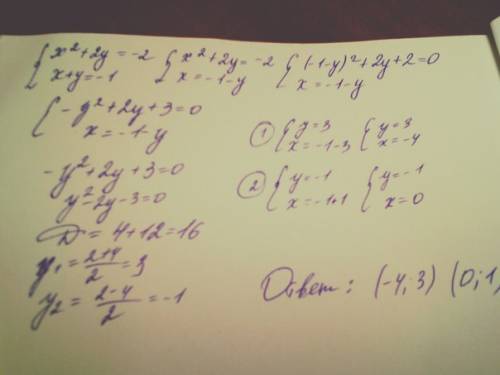 {x²+2y=-2 {x²+2y=-2 {(-1-y)²+2y+2=0
{x+y=-1 {x=-1-y {x=-1-y
{-y²+2y+3=0
{x=-1-y
-y²+2y+3=0
y²-2y-3=0
D=4+12=16
y₁=2+4/2=3
y₂=2-4/2=-1
① {y=3 {y=3
{x=-1-3 {x=-4
② {y=-1 {y=-1
{x=-1+1 {x=0
Ответ: (-4;3) (0;1)